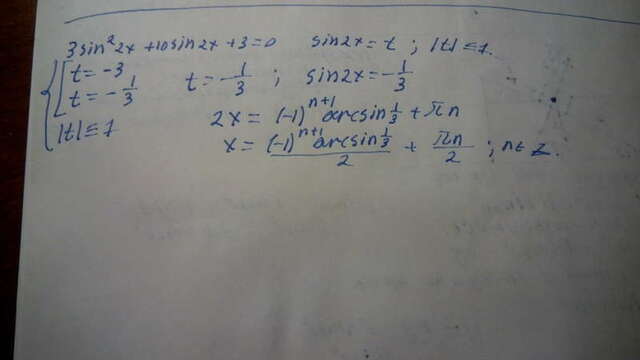 3sin²2x + 10sin2x + 3 = 0 sin2x = t ; |t| ≤ 1.
t = -3 t = -1/3 ; sin2x = -1/3
t = -1/3
|t| ≤ 1 2x = (-1)ⁿ⁺¹ arcsin 1/3 + πn
x = (-1)ⁿ⁺¹ arcsin 1/3 / 2 + πn/2 ; n∈Z.